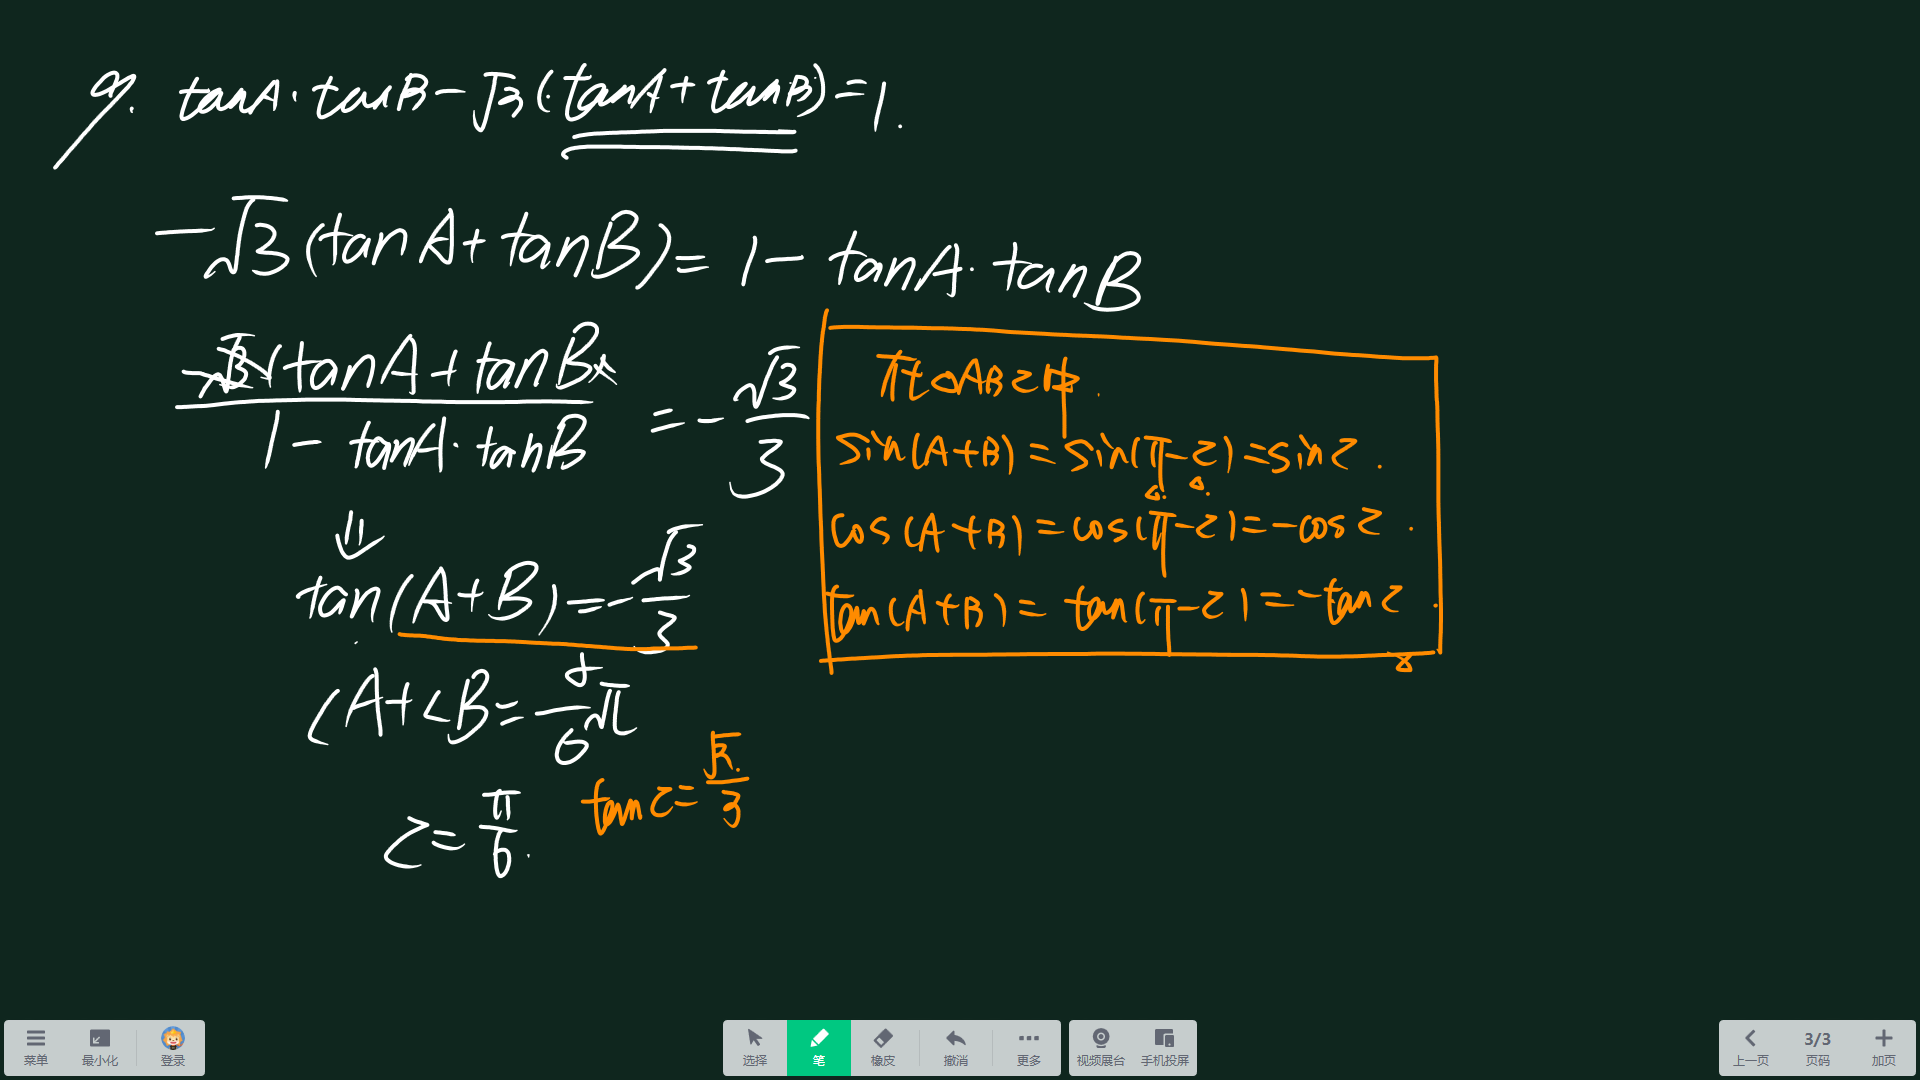 9. tanA·tanB-√3(tanA+tanB)=1.
-√3(tanA+tanB)=1-tanA·tanB
tanA+tanB/1-tanA·tanB=-√3/3
⇓
tan(A+B)=-√3/3
∠A+∠B=5/6π
C=π/6.
tanC=√3/3
在△ABC中.
sin(A+B)=sin(π-C)=sinC.
cos(A+B)=cos(π-C)=-cosC.
tan(A+B)=tan(π-C)=-tanC.
菜单 最小化 登录 选择 笔 橡皮 撤消 更多 视频展台 手机投屏 上一页 3/3 页码 加页